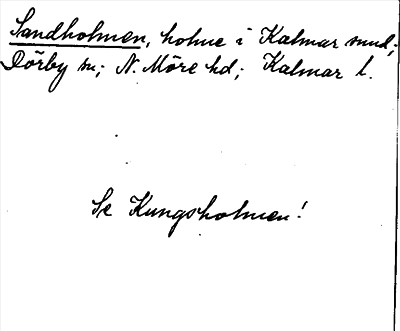 Sandholmen, holme i Kalmar sund;
Dörby sn; N. Möre hd; Kalmar l.
Se Kungsholmen!